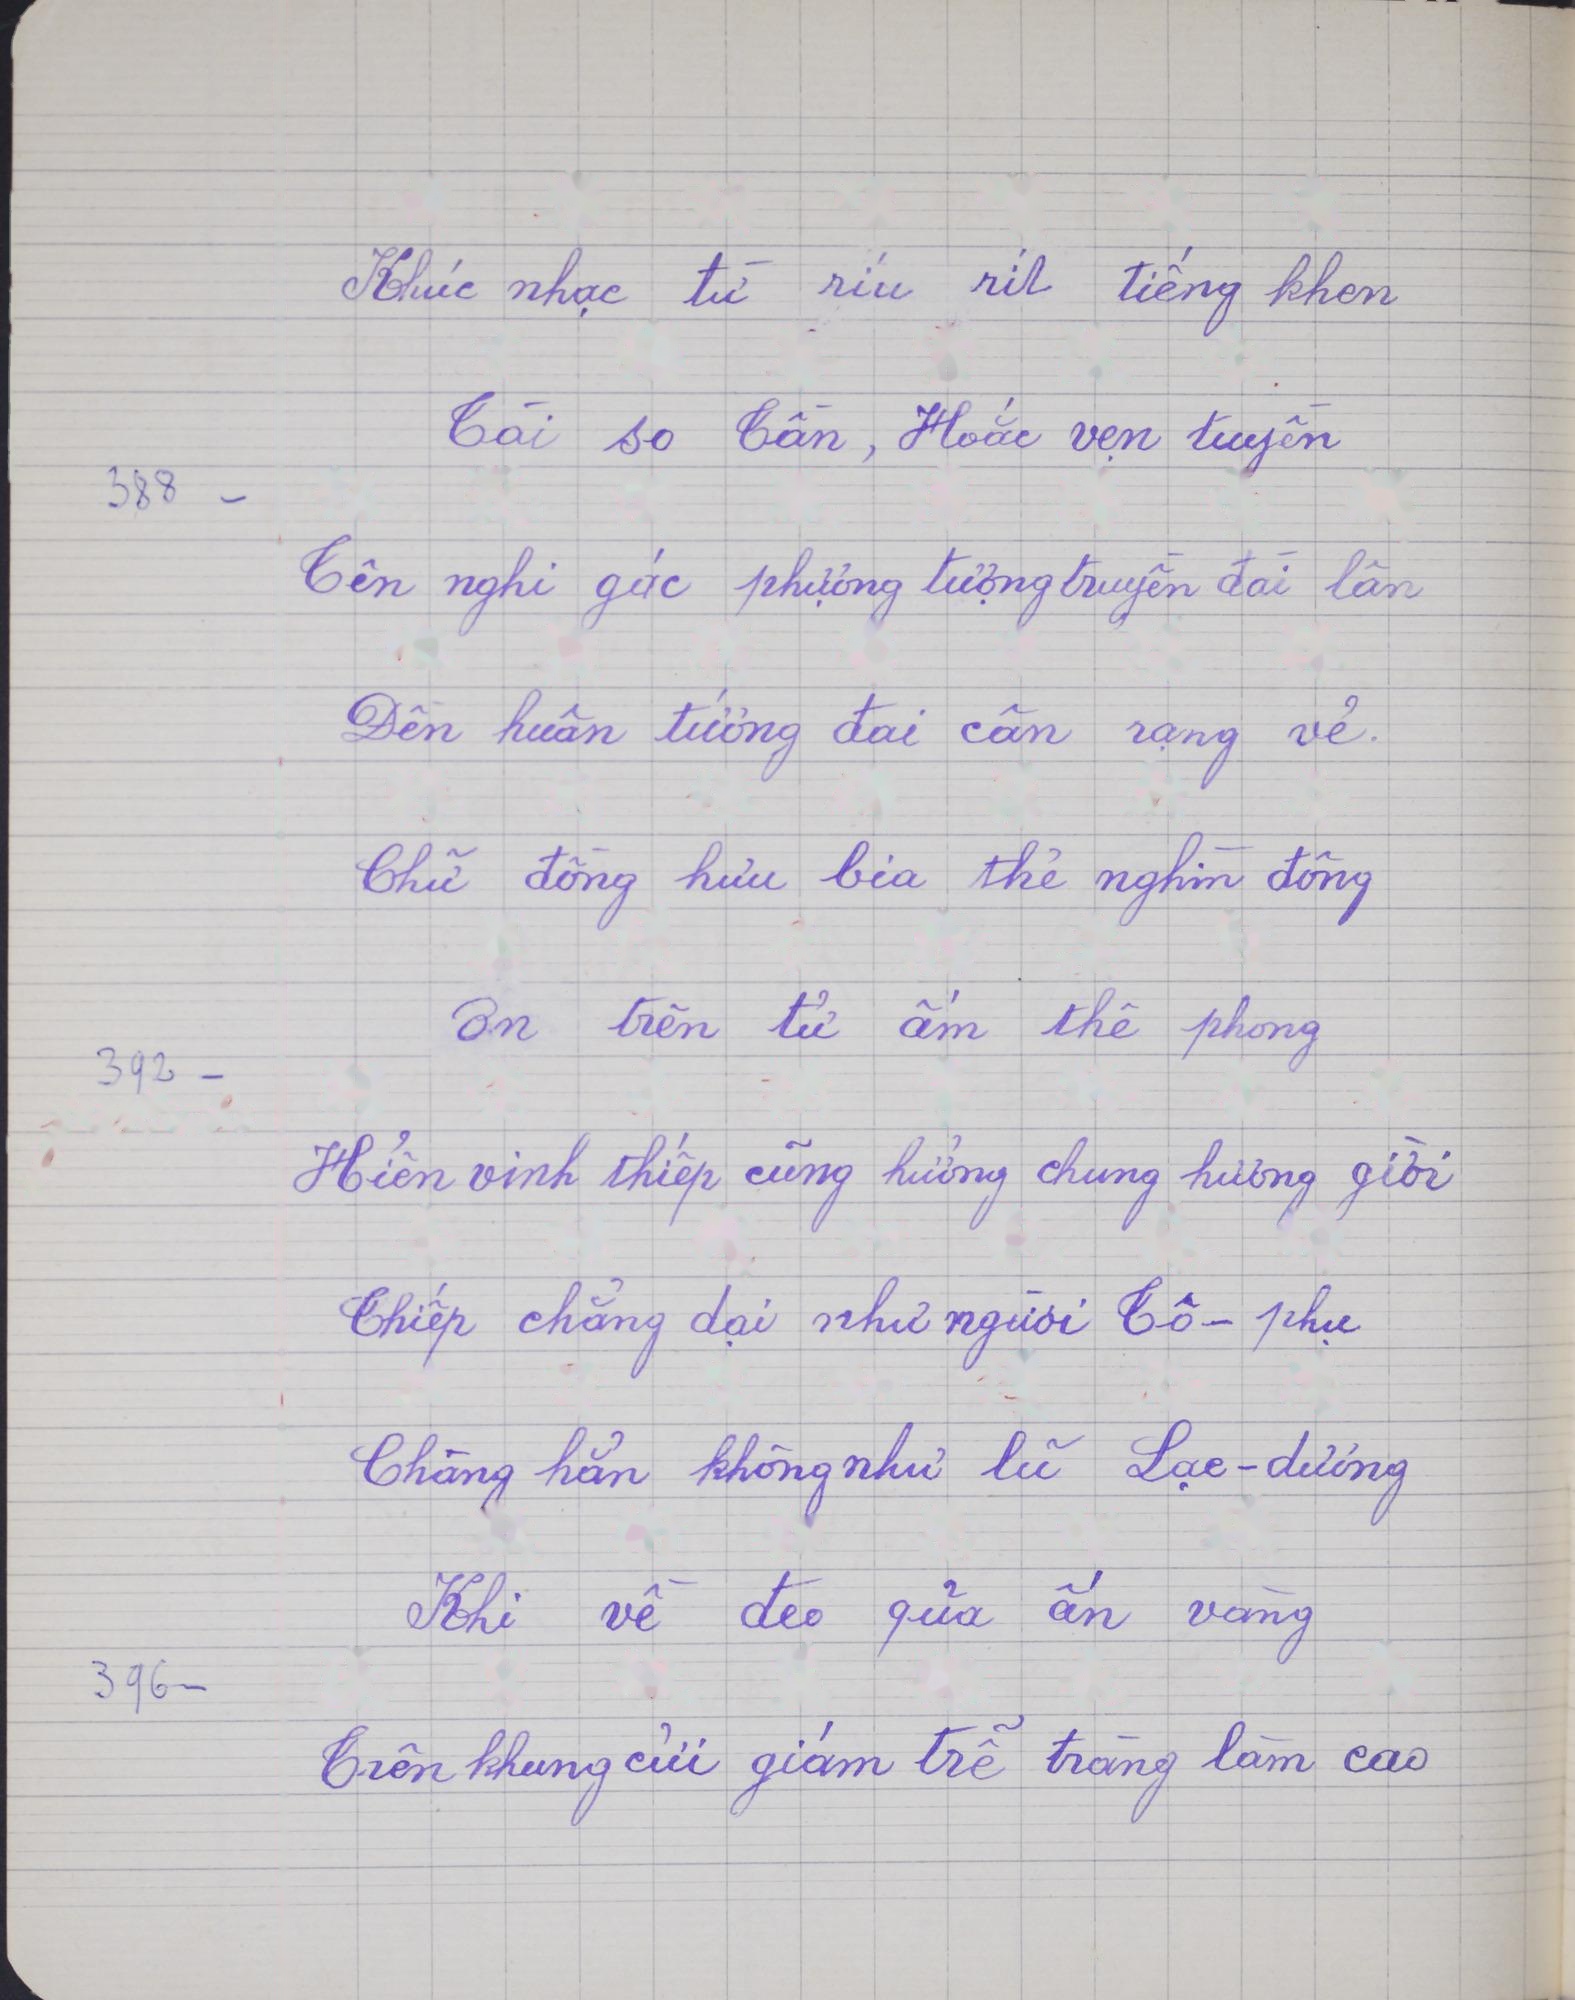 Khúc nhạc từ ríu rít tiếng khen
Tài so Tần, Hoắc vẹn tuyền
388 -
Tên nghi gác phượng tượng truyền đài lân
Đền huân tướng đai cân rạng vẻ.
Chữ đồng hưu bia thẻ nghìn đông
Ơn trên tử ấm thê phong
392 -
Hiển vinh thiếp cũng hưởng chung hương giời
Thiếp chẳng dại như người Tô - phụ
Chàng hẳn không như lũ Lạc - dương
Khi về đeo quả ấn vàng
396 -
Trên khung cửi giám trễ tràng làm cao